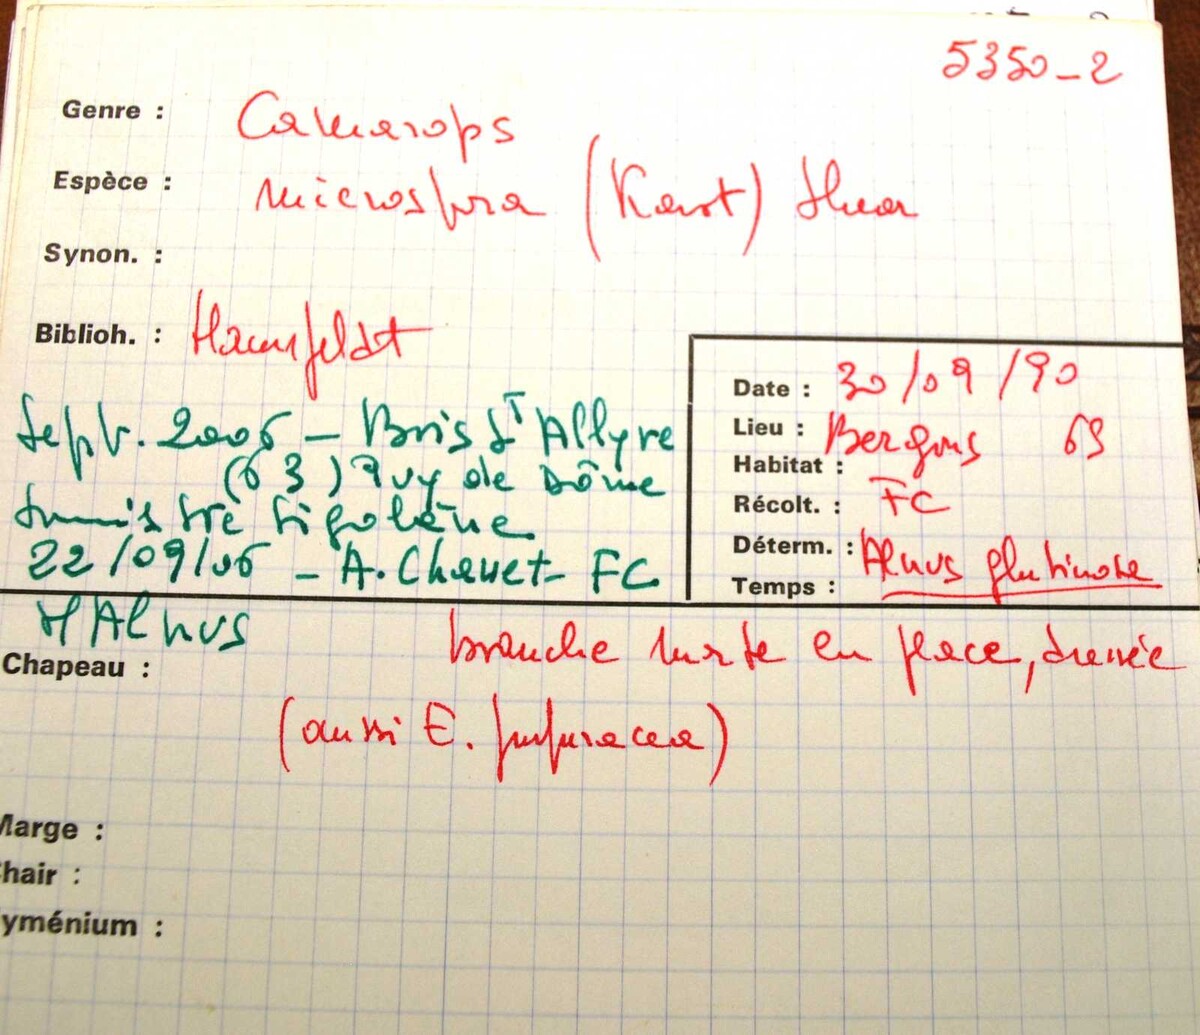 5350-2
Genre : Camarops
Espèce : microspora (Karst) Shear
Synon. :
Biblioh. : Hannfeldt
Date : 30/09/90
Lieu : Bergons 65
Habitat :
Récolt. : FC
Déterm. : Alnus glutinosa
Temps :
Sept. 2006 - Bois St Allyre
(63) Puy de Dôme
Ste Sigolène
22/09/06 - A. Chavet - FC
Alnus
branche morte en place, dressée
Chapeau :
(aussi E. furfuracea)
Marge :
Chair :
yménium :